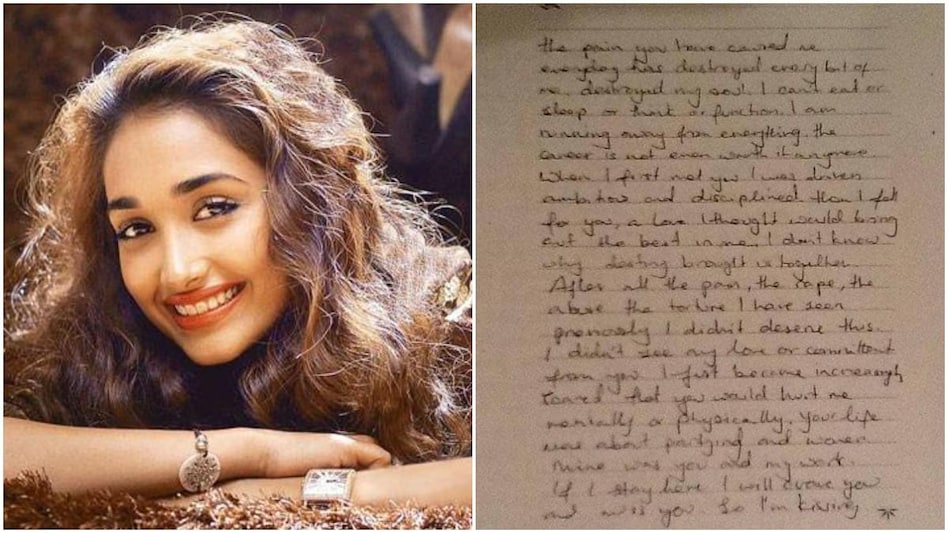 the pain you have caused me
everyday has destroyed every bit of
me, destroyed my soul. I can't eat or
sleep or think or function. I am
running away from everything. the
career is not even worth it anymore
When I first met you I was driven
ambitious and disciplined then I fell
for you, a love I thought would bring
out the best in me. I don't know
why destiny brought us together.
After all the pain, the rape, the
abuse the torture I have seen
previously I didn't deserve this.
I didn't see any love or commitment
from you. I just became increasingly
scared that you would hurt me
mentally or physically. Your life
was about partying and women
mine was you and my work.
If I stay here I will crave you
and miss you. So I'm kissing